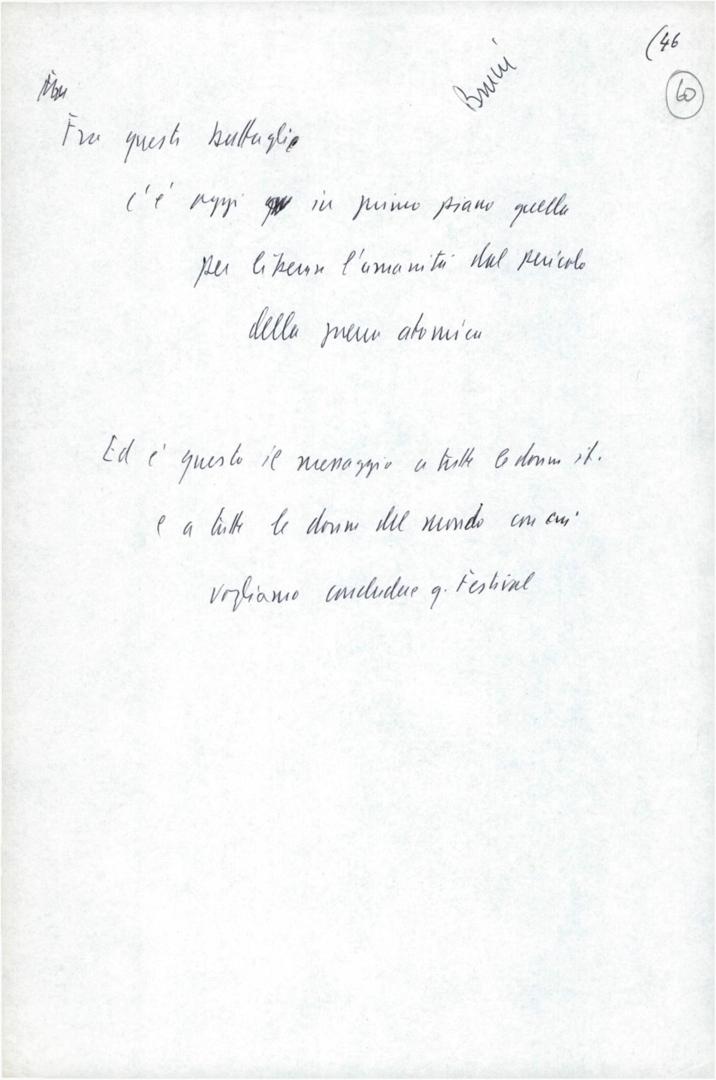 (46
60
Fra queste battaglie
c'è oggi in primo piano quella
per liberare l'umanità dal pericolo
della guerra atomica
Ed è questo il messaggio a tutte le donne it.
e a tutte le donne del mondo con cui
vogliamo concludere q. Festival